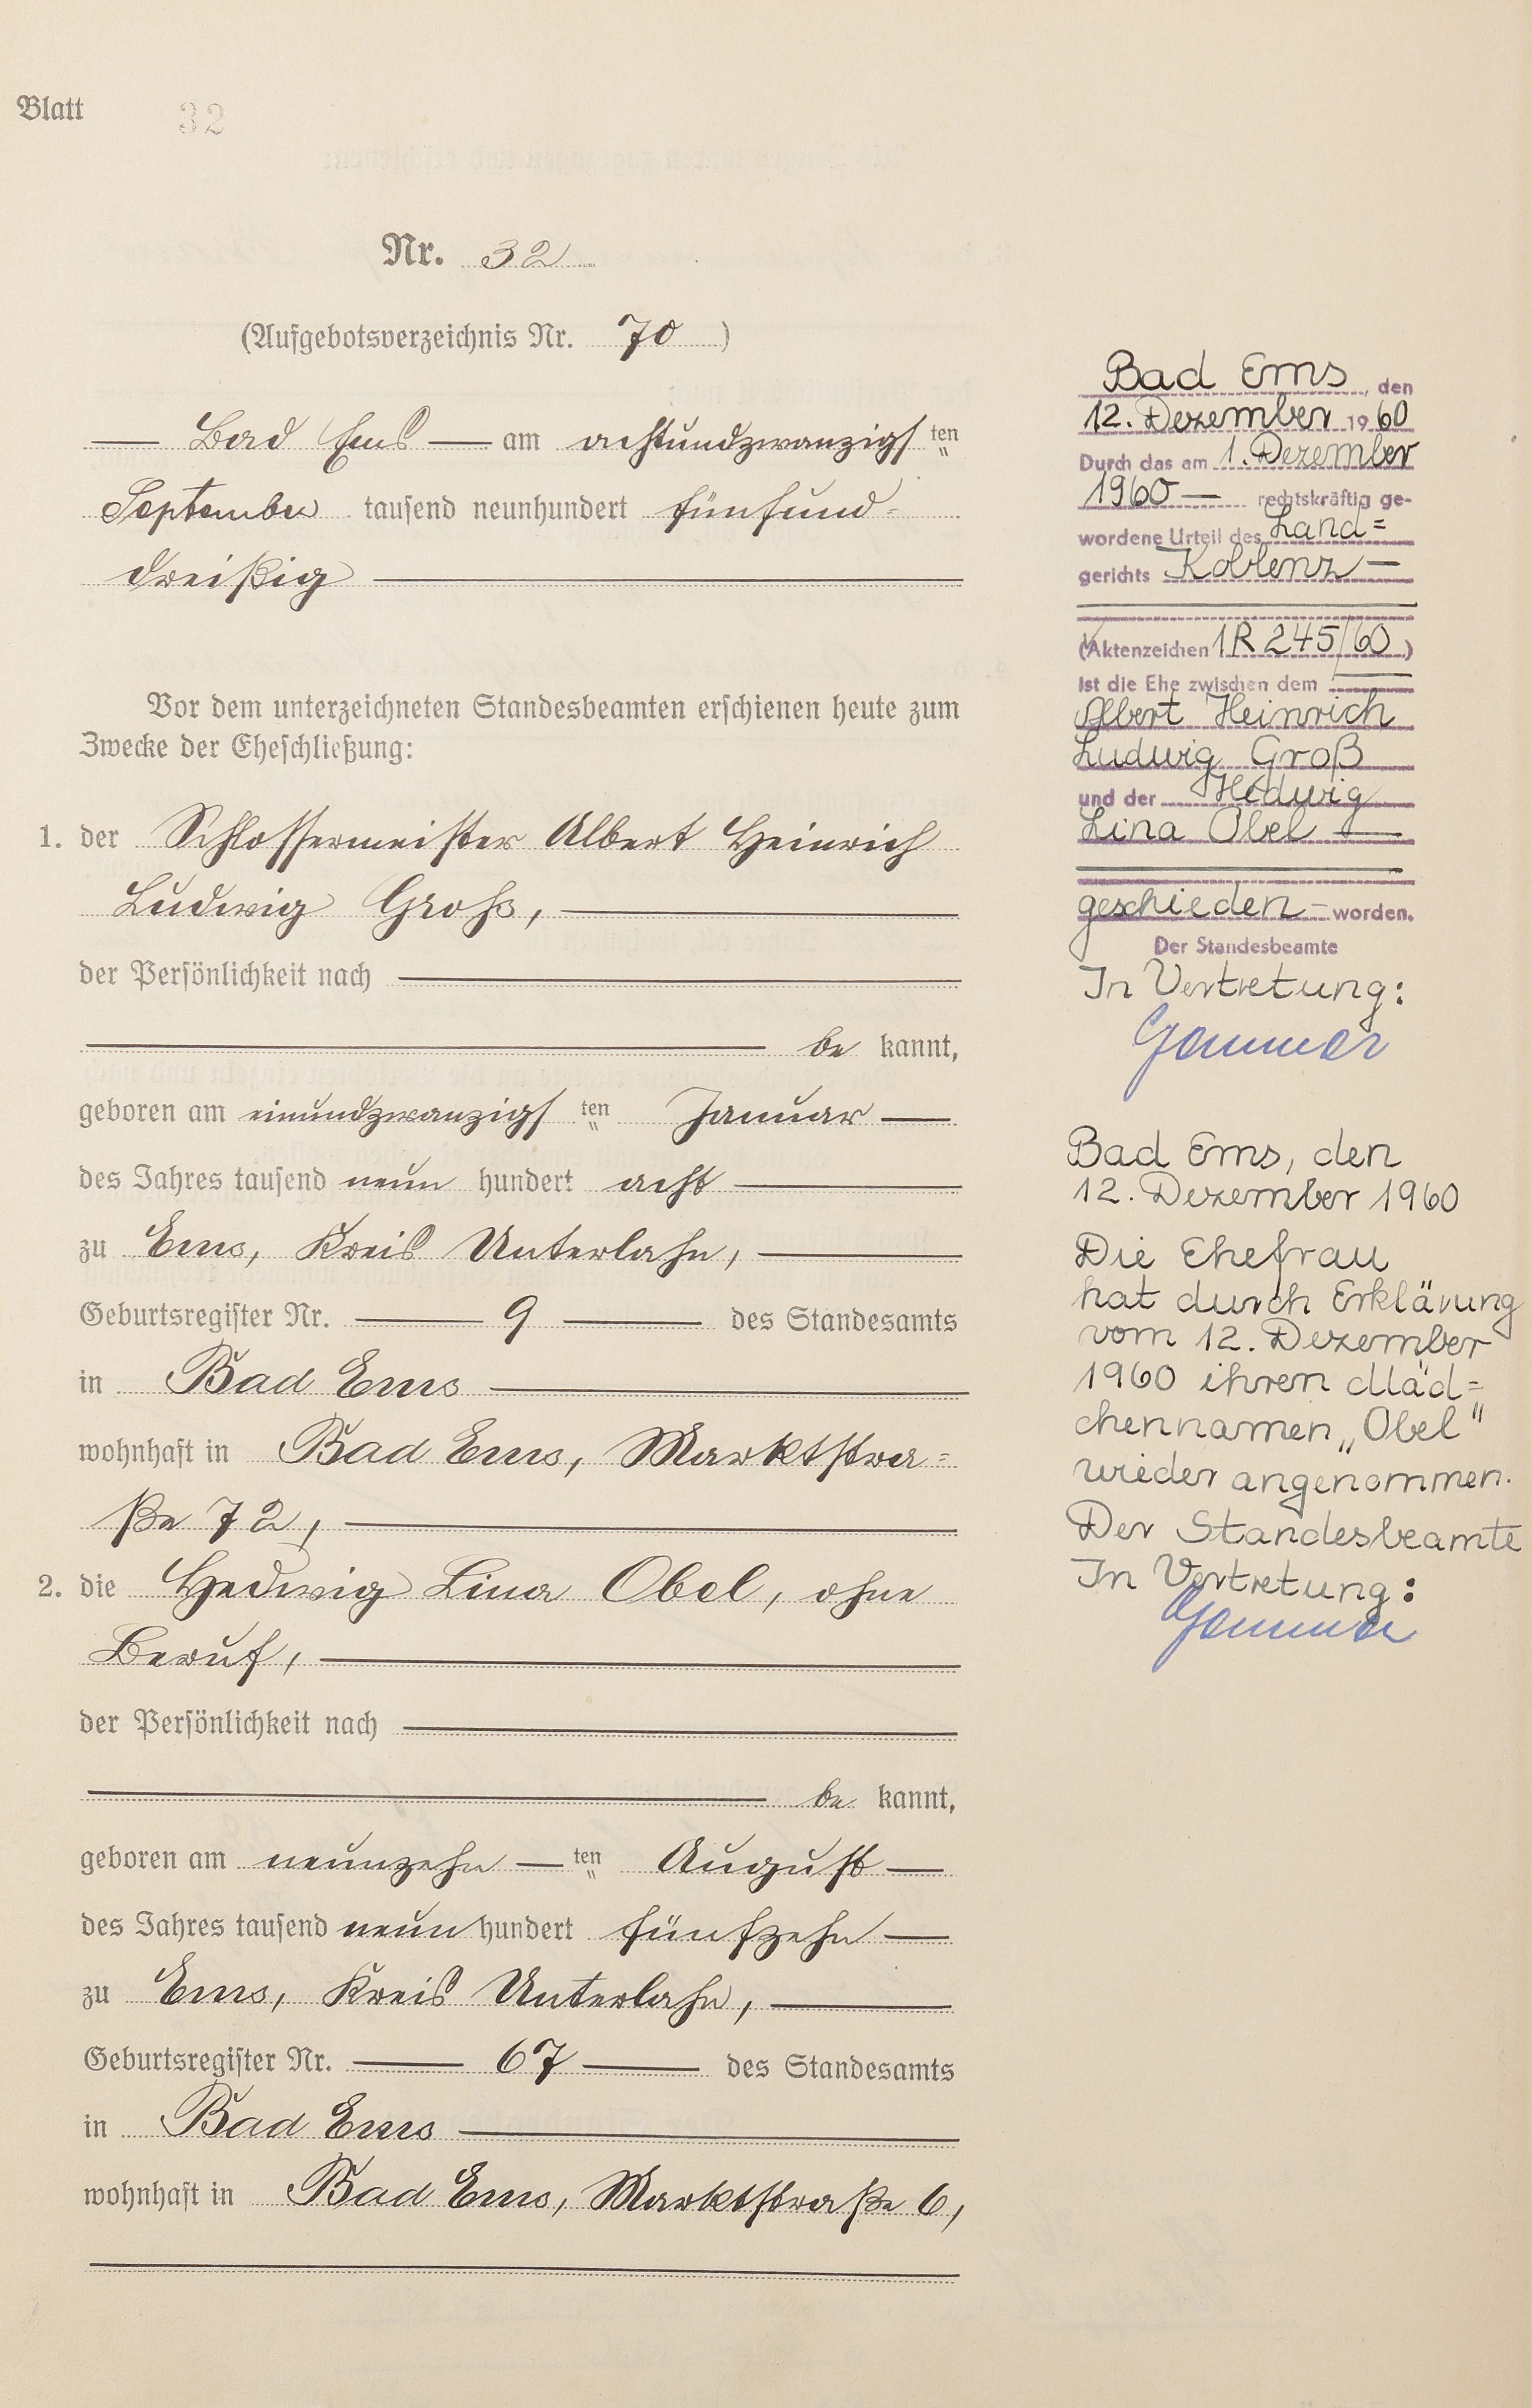 Blatt 32
Nr. 32
(Aufgebotsverzeichnis Nr. 70 )
— Bad Ems — am achtundzwanzigs ten
September tausend neunhundert fünfund=
dreißig
Vor dem unterzeichneten Standesbeamten erschienen heute zum
Zwecke der Eheschließung:
1. der Schlossermeister Albert Heinrich
Ludwig Groß,
der Persönlichkeit nach
be kannt,
geboren am einundzwanzigs ten Januar —
des Jahres tausend neun hundert acht
zu Ems, Kreis Unterlahn,
Geburtsregister Nr. — 9 — des Standesamts
in Bad Ems
wohnhaft in Bad Ems, Marktstra=
ße 72,
2. die Hedwig Lina Obel, ohne
Beruf,
der Persönlichkeit nach
be kannt,
geboren am neunzehn — ten August —
des Jahres tausend neun hundert fünfzehn —
zu Ems, Kreis Unterlahn,
Geburtsregister Nr. — 67 — des Standesamts
in Bad Ems
wohnhaft in Bad Ems, Marktstraße 6,
Bad Ems, den
12. Dezember 1960
Durch das am 1. Dezember
1960 — rechtskräftig ge-
wordene Urteil des Land=
gerichts Koblenz —
(Aktenzeichen 1 R 245/60 )
ist die Ehe zwischen dem
Albert Heinrich
Ludwig Groß
und der Hedwig
Lina Obel —
geschieden — worden.
Der Standesbeamte
In Vertretung:
Bad Ems, den
12. Dezember 1960
Die Ehefrau
hat durch Erklärung
vom 12. Dezember
1960 ihren Mäd=
chennamen „Obel"
wieder angenommen.
Der Standesbeamte
In Vertretung: